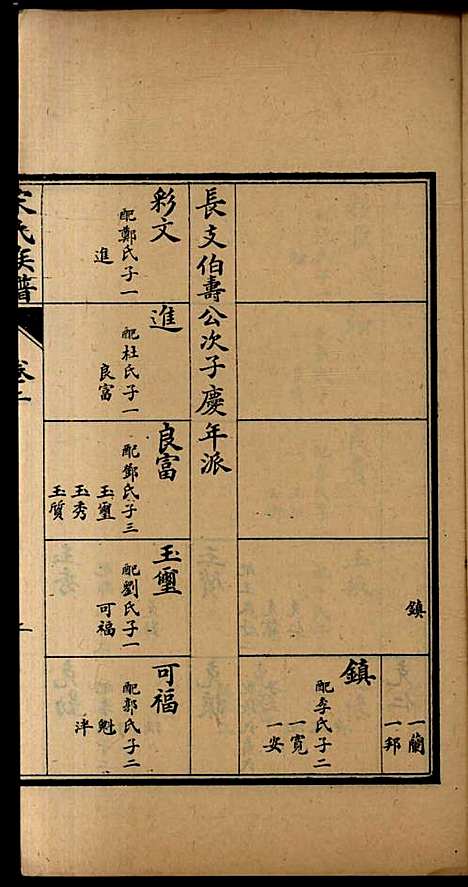 鎮
一蘭
一邦
鎮
配李氏子二
一寬
一安
長支伯壽公次子慶年派
彩文
配鄭氏子一
進
進
配杜氏子一
良富
良富
配鄧氏子三
玉璽
玉秀
玉質
玉璽
配劉氏子一
可福
可福
配郝氏子二
魁
泮
宋氏族譜
卷二